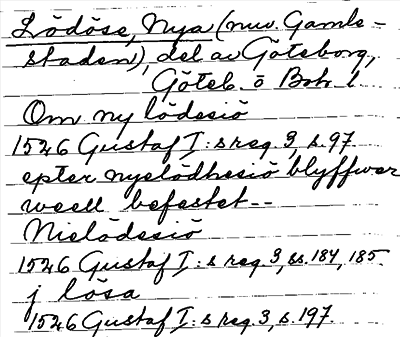 Lödöse, Nya (nuv. Gamle-
staden), del av Göteborg,
Göteb. o Boh. l.
Om ny lödesiö
1526 Gustaf I:s reg. 3, s. 97.
epter nyelödhesiö blyffwer
weell befestet--
Nielödesiö
1526 Gustaf I:s reg. 3, ss. 184, 185.
j lösa
1526 Gustaf I:s reg. 3, s. 197.